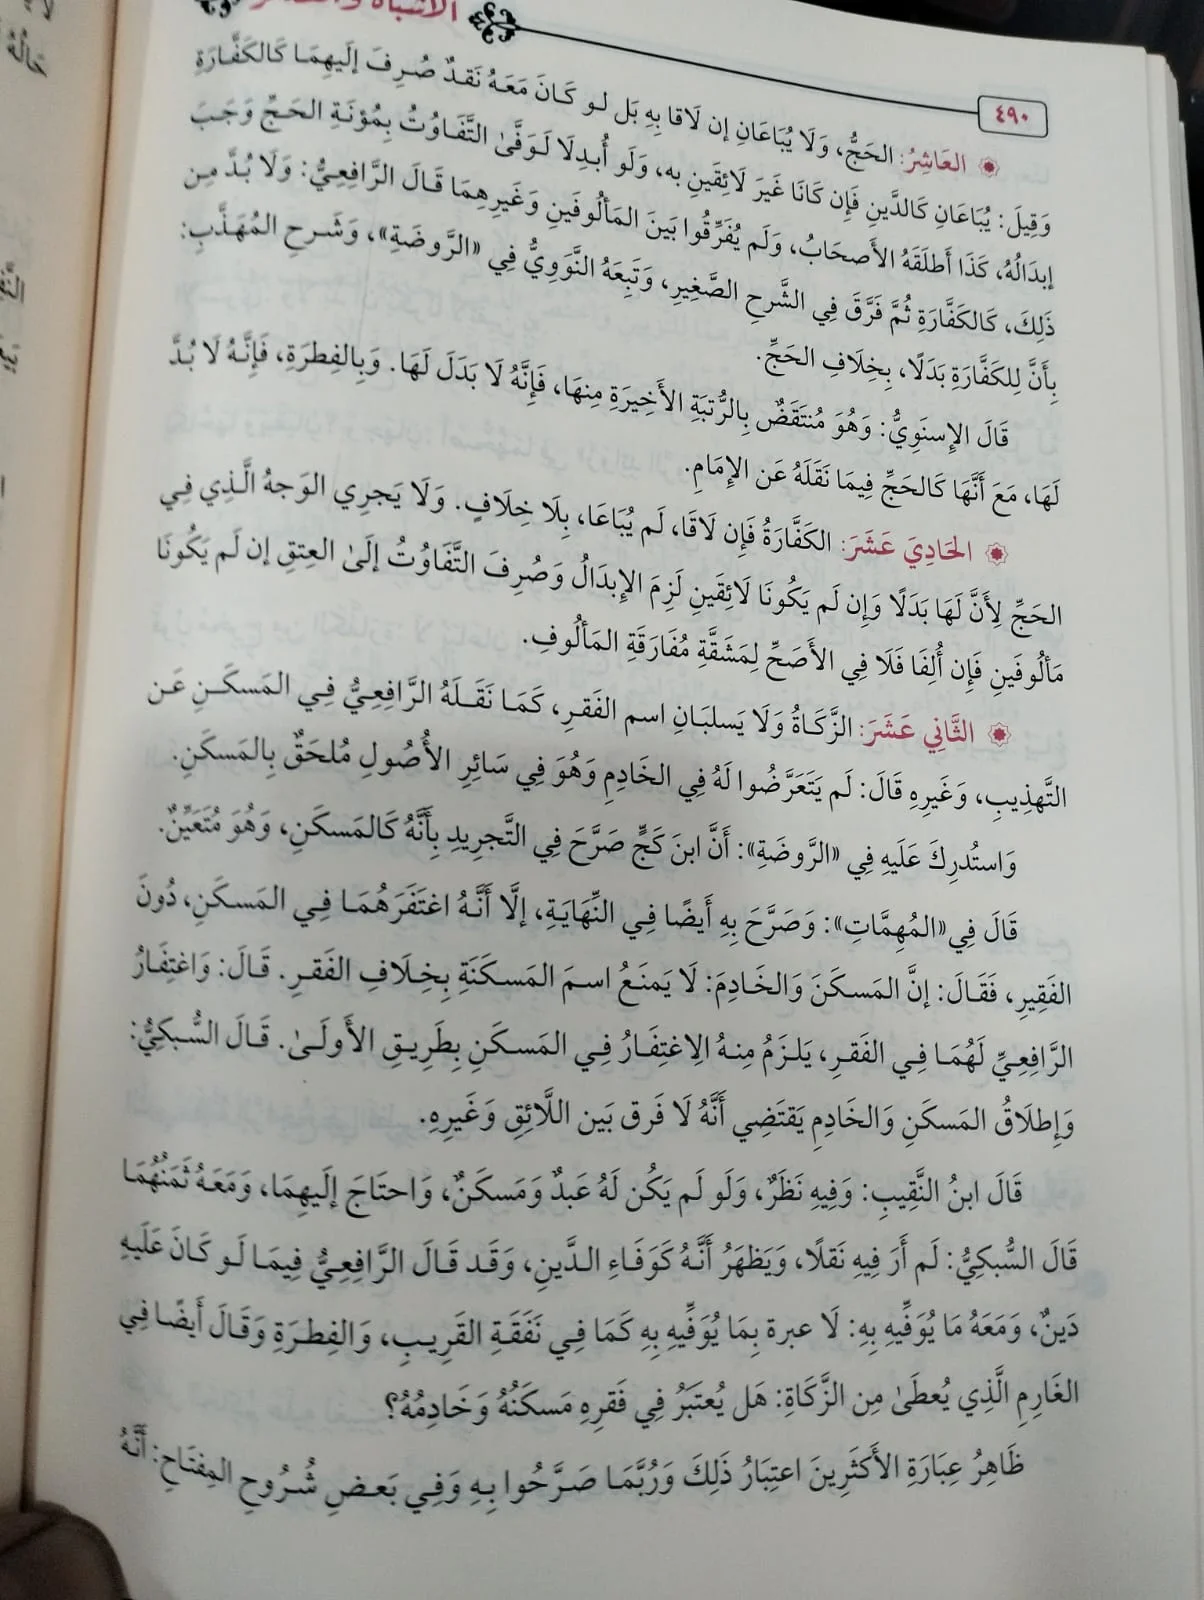 ٤٩٠
العَاشِرُ: الحَجُّ، وَلَا يُبَاعَانِ إن لَاقَا بِهِ بَل لو كَانَ مَعَهُ نَقدٌ صُرِفَ إلَيهِمَا كَالكَفَّارَةِ
وَقِيلَ: يُبَاعَانِ كَالدَّينِ فَإِن كَانَا غَيرَ لَائِقَينِ به، وَلَو أُبدِلَا لَوَفَّىٰ التَّفَاوُتُ بِمُؤنَةِ الحَجِّ وَجَبَ
إبدَالُهُ، كَذَا أَطلَقَهُ الأَصحَابُ، وَلَم يُفَرِّقُوا بَينَ المَألُوفَينِ وَغَيرِهِمَا قَالَ الرَّافِعِيُّ: وَلَا بُدَّ مِن
ذَلِكَ، كَالكَفَّارَةِ ثُمَّ فَرَّقَ فِي الشَّرحِ الصَّغِيرِ، وَتَبِعَهُ النَّوَوِيُّ فِي «الرَّوضَةِ»، وَشَرحِ المُهَذَّبِ:
بِأَنَّ لِلكَفَّارَةِ بَدَلًا، بِخِلَافِ الحَجِّ.
قَالَ الإِسنَوِيُّ: وَهُوَ مُنتَقَضٌ بِالرُّتبَةِ الأَخِيرَةِ مِنهَا، فَإِنَّهُ لَا بَدَلَ لَهَا. وَبِالفِطرَةِ، فَإِنَّهُ لَا بُدَّ
لَهَا، مَعَ أَنَّهَا كَالحَجِّ فِيمَا نَقَلَهُ عَن الإِمَامِ.
الحَادِيَ عَشَرَ: الكَفَّارَةُ فَإِن لَاقَا، لَم يُبَاعَا، بِلَا خِلَافٍ. وَلَا يَجرِي الوَجهُ الَّذِي فِي
الحَجِّ لِأَنَّ لَهَا بَدَلًا وَإِن لَم يَكُونَا لَائِقَينِ لَزِمَ الإِبدَالُ وَصُرِفَ التَّفَاوُتُ إلَىٰ العِتقِ إن لَم يَكُونَا
مَألُوفَينِ فَإِن أُلِفَا فَلَا فِي الأَصَحِّ لِمَشَقَّةِ مُفَارَقَةِ المَألُوفِ.
الثَّانِي عَشَرَ: الزَّكَاةُ وَلَا يَسلبَانِ اسم الفَقرِ، كَمَا نَقَلَهُ الرَّافِعِيُّ فِي المَسكَنِ عَن
التَّهذِيبِ، وَغَيرِهِ قَالَ: لَم يَتَعَرَّضُوا لَهُ فِي الخَادِمِ وَهُوَ فِي سَائِرِ الأُصُولِ مُلحَقٌ بِالمَسكَنِ.
وَاستُدرِكَ عَلَيهِ فِي «الرَّوضَةِ»: أَنَّ ابنَ كَجٍّ صَرَّحَ فِي التَّجرِيدِ بِأَنَّهُ كَالمَسكَنِ، وَهُوَ مُتَعَيِّنٌ.
قَالَ فِي «المُهِمَّاتِ»: وَصَرَّحَ بِهِ أَيضًا فِي النِّهَايَةِ، إلَّا أَنَّهُ اغتَفَرَهُمَا فِي المَسكَنِ، دُونَ
الفَقِيرِ، فَقَالَ: إنَّ المَسكَنَ وَالخَادِمَ: لَا يَمنَعُ اسمَ المَسكَنَةِ بِخِلَافِ الفَقرِ. قَالَ: وَاغتِفَارُ
الرَّافِعِيِّ لَهُمَا فِي الفَقرِ، يَلزَمُ مِنهُ الِاغتِفَارُ فِي المَسكَنِ بِطَرِيقِ الأَولَىٰ. قَالَ السُّبكِيُّ:
وَإِطلَاقُ المَسكَنِ وَالخَادِمِ يَقتَضِي أَنَّهُ لَا فَرق بَين اللَّائِقِ وَغَيرِهِ.
قَالَ ابنُ النَّقِيبِ: وَفِيهِ نَظَرٌ، وَلَو لَم يَكُن لَهُ عَبدٌ وَمَسكَنٌ، وَاحتَاجَ إلَيهِمَا، وَمَعَهُ ثَمَنُهُمَا
قَالَ السُّبكِيُّ: لَم أَرَ فِيهِ نَقلًا، وَيَظهَرُ أَنَّهُ كَوَفَاءِ الدَّينِ، وَقَد قَالَ الرَّافِعِيُّ فِيمَا لَو كَانَ عَلَيهِ
دَينٌ، وَمَعَهُ مَا يُوَفِّيهِ بِهِ: لَا عبرة بِمَا يُوَفِّيهِ بِهِ كَمَا فِي نَفَقَةِ القَرِيبِ، وَالفِطرَةِ وَقَالَ أَيضًا فِي
الغَارِمِ الَّذِي يُعطَىٰ مِن الزَّكَاةِ: هَل يُعتَبَرُ فِي فَقرِهِ مَسكَنُهُ وَخَادِمُهُ؟
ظَاهِرُ عِبَارَةِ الأَكثَرِينَ اعتِبَارُ ذَلِكَ وَرُبَّمَا صَرَّحُوا بِهِ وَفِي بَعضِ شُرُوحِ المِفتَاحِ: أَنَّهُ